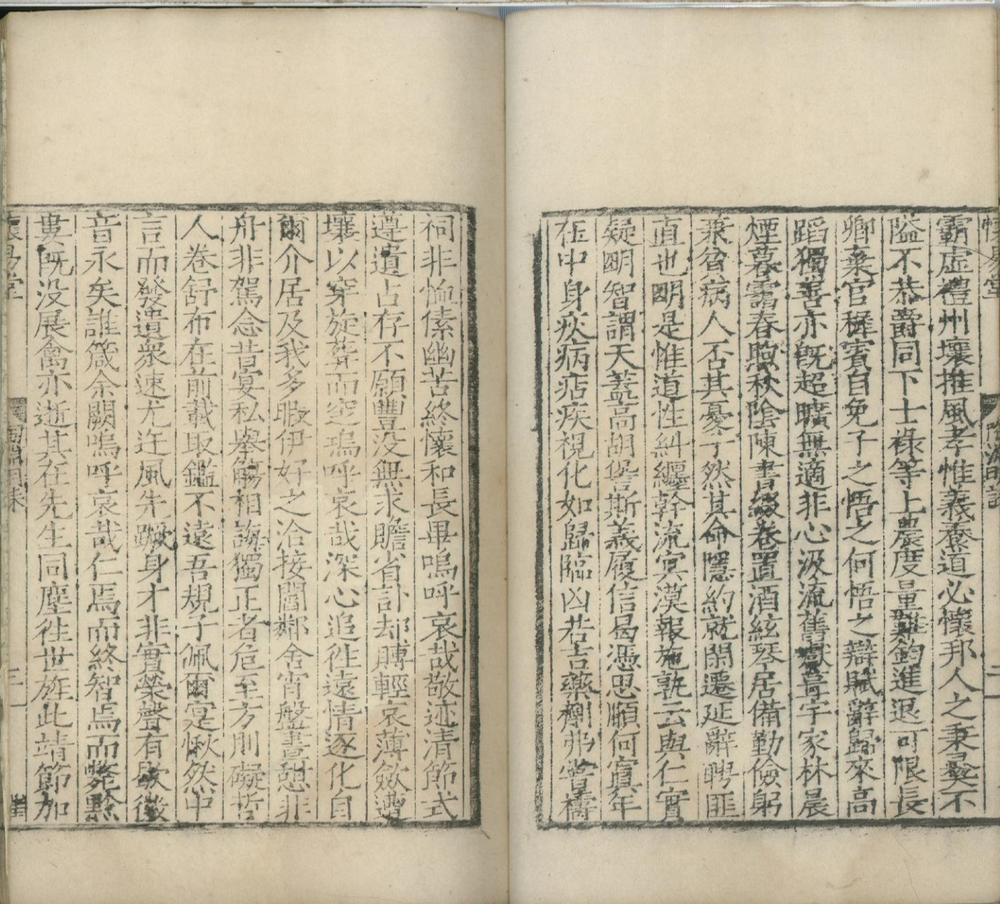 霸虛禮州壤推風孝惟義養道必懷邦人之秉彝不
隘不恭爵同下士祿等上農度量難鈞進退可限長
卿棄官稚賓自免子之悟之何悟之辯賦辭歸來高
蹈獨善亦旣超曠無適非心汲流舊巘葺宇家林晨
煙暮靄春煦秋陰陳書綴卷置酒絃琴居備勤儉躬
兼貧病人否其憂子然其命隱約就閑遷延辭聘匪
直也明是惟道性糾纆斡流冥漠報施孰云與仁實
疑明智謂天蓋高胡諐斯義履信曷憑思順何寘年
在中身疢病痁疾視化如歸臨凶若吉藥劑弗嘗禱
祠非恤傃幽告終懷和長畢嗚呼哀哉敬述清節式
遵遺占存不願豐没無求贍省訃却賻輕哀薄斂遭
壤以穿旋葬而窆嗚呼哀哉深心追往遠情逐化自
爾介居及我多暇伊好之洽接閻鄰舍宵盤晝憩非
舟非駕念昔宴私舉觴相誨獨正者危至方則礙哲
人卷舒布在前載取鑑不遠吾規子佩爾寔愀然中
言而發違衆速尤迕風先蹶身才非實榮聲有歇徽
音永矣誰箴余闕嗚呼哀哉仁焉而終智焉而斃黔
婁旣没展禽亦逝其在先生同塵往世旌此靖節加